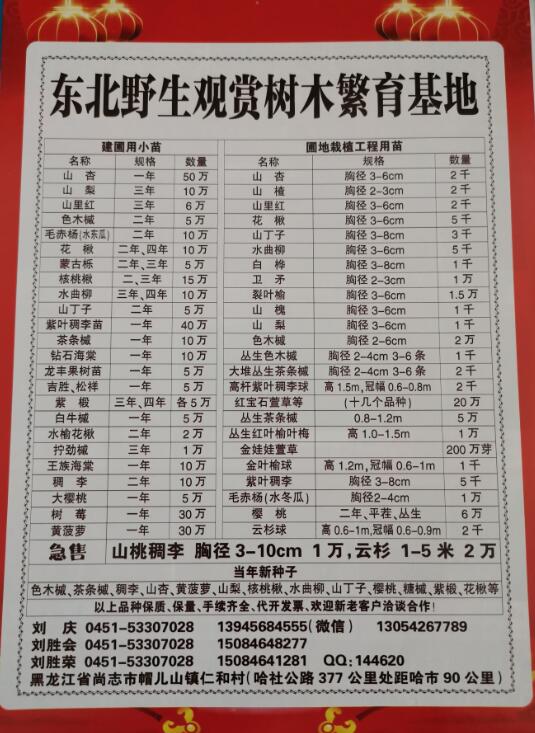 东北野生观赏树木繁育基地
建圃用小苗 圃地栽植工程用苗
名称 规格 数量 名称 规格 数量
山杏 一年 50万 山杏 胸径3-6cm 2千
山梨 三年 10万 山楂 胸径2-3cm 2千
山里红 三年 6万 山里红 胸径3-6cm 2千
色木槭 二年 5万 花楸 胸径3-6cm 5千
毛赤杨(水东瓜) 二年 10万 山丁子 胸径3-8cm 3千
花楸 二年、四年 10万 水曲柳 胸径3-6cm 5千
蒙古栎 二年、三年 5万 白桦 胸径3-8cm 1千
核桃楸 二、三年 15万 卫矛 胸径2-3cm 1万
水曲柳 三年、四年 10万 裂叶榆 胸径3-6cm 1.5万
山丁子 二年 5万 山槐 胸径3-6cm 1千
紫叶稠李苗 一年 40万 山梨 胸径3-6cm 1千
茶条槭 一年 10万 色木槭 胸径2-6cm 2万
钻石海棠 一年 10万 丛生色木槭 胸径2-4cm 3-6条 1千
龙丰果树苗 一年 5万 大堆丛生茶条槭 胸径2-4cm 3-6条 2千
吉胜、松祥 一年 5万 高杆紫叶稠李球 高1.5m,冠幅0.6-0.8m 2千
紫椴 三年、四年 各5万 红宝石萱草等 (十几个品种) 20万
白牛槭 一年 5万 丛生茶条槭 0.8-1.2m 5万
水榆花楸 二年 2万 丛生红叶榆叶梅 高1.0-1.5m 1万
拧劲槭 三年 1万 金娃娃萱草 200万芽
王族海棠 一年 10万 金叶榆球 高1.2m,冠幅0.6-1m 1千
稠李 二年 10万 紫叶稠李 胸径3-8cm 5千
大樱桃 一年 5万 毛赤杨(水冬瓜) 胸径2-4cm 1万
树莓 一年 30万 樱桃 二年、平茬、丛生 6万
黄菠萝 一年 30万 云杉球 高0.6-1m,冠幅0.6-0.9m 2千
急售 山桃稠李 胸径3-10cm 1万,云杉 1-5米 2万
当年新种子
色木槭、茶条槭、稠李、山杏、黄菠萝、山梨、核桃楸、水曲柳、山丁子、樱桃、糖槭、紫椴、花楸等
以上品种保质、保量、手续齐全、代开发票、欢迎新老客户洽谈合作!
刘 庆 0451-53307028 13945684555(微信) 13054267789
刘胜会 0451-53307028 15084648277
刘胜荣 0451-53307028 15084641281 QQ:144620
黑龙江省尚志市帽儿山镇仁和村(哈社公路377公里处距哈市90公里)